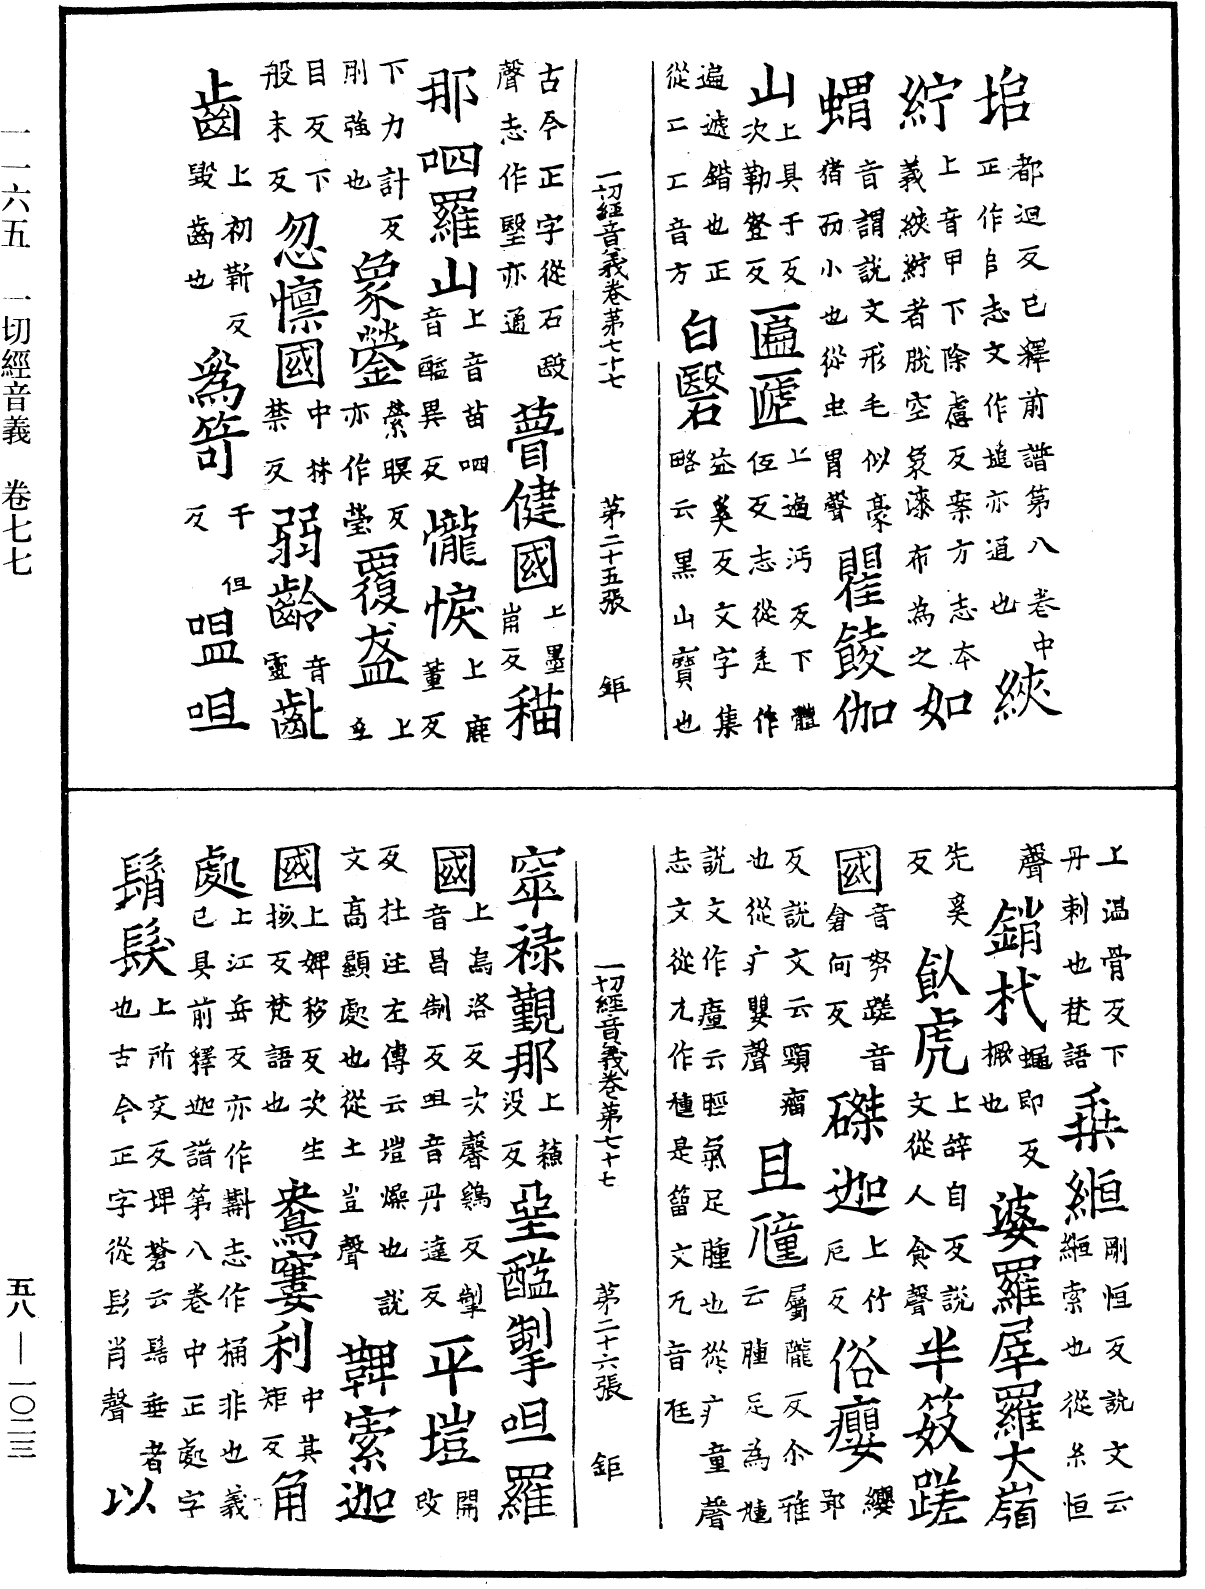 一一六五 一切經音義 卷七七
堆都迴反已釋前譜第八卷中 綊
正作𠂤志文作塠亦通也
紵上音甲下除慮反案方志本 如
義綊紵者脫空象漆布為之
蝟音謂說文形毛似豪 瞿餕伽
猪而小也從虫胃聲
山上具于反 匾㔸上遍沔反下體
次勒登反 伍反志從辵作
遍遞錯也正 白醫益奚反文字集
從匚匚音方 略云黑山寶也
一切經音義卷第七十七 第二十五張 鉅
古今正字從石殹 瞢健國上墨 稸
聲志作墾亦通 崩反
那呬羅山上音苗呬 㦬悷上鹿
音醯異反 董反
下力計反 象鎣縈暝反 覆盍上
剛強也 亦作瑩
目反下 忽懍國中林 弱齡音 齔
般末反 禁反 靈
齒上初靳反 為笴干但 嗢呾
毀齒也 反
上溫骨反下 乗縆剛恒反說文云
丹剌也梵語 縆索也從糸恒
聲 銷杙蠅即反 婆羅犀羅大嶺
橛也
先奚 飤虎上辭自反說 半笯蹉
反 文從人食聲
國音努蹉音 磔迦上竹 俗癭纓郢
倉何反 厄反
反說文云頸瘤 且𤺄屬隴反尒雅
也從疒嬰聲 云腫足為尰
說文作𤺄云脛氣足腫也從疒童聲
志文從尢作種是籀文尢音尪
一切經音義卷第七十七 第二十六張 鉅
窣祿覲那上蘓 堊醯掣呾羅
沒反
國上烏洛反次馨鷄反掣 平塏開
音昌制反呾音丹達反 改
反杜注左傳云塏燥也說 鞞索迦
文高顯處也從土豈聲
國上婢移反次生 鴦窶利中其 角
挌反梵語也 矩反
處上江岳反亦作斠志作桷非也義
已具前釋迦譜第八卷中正處字
鬚髮上所交反埤蒼云髾垂者 以
也古今正字從髟肖聲
五八—一〇二三